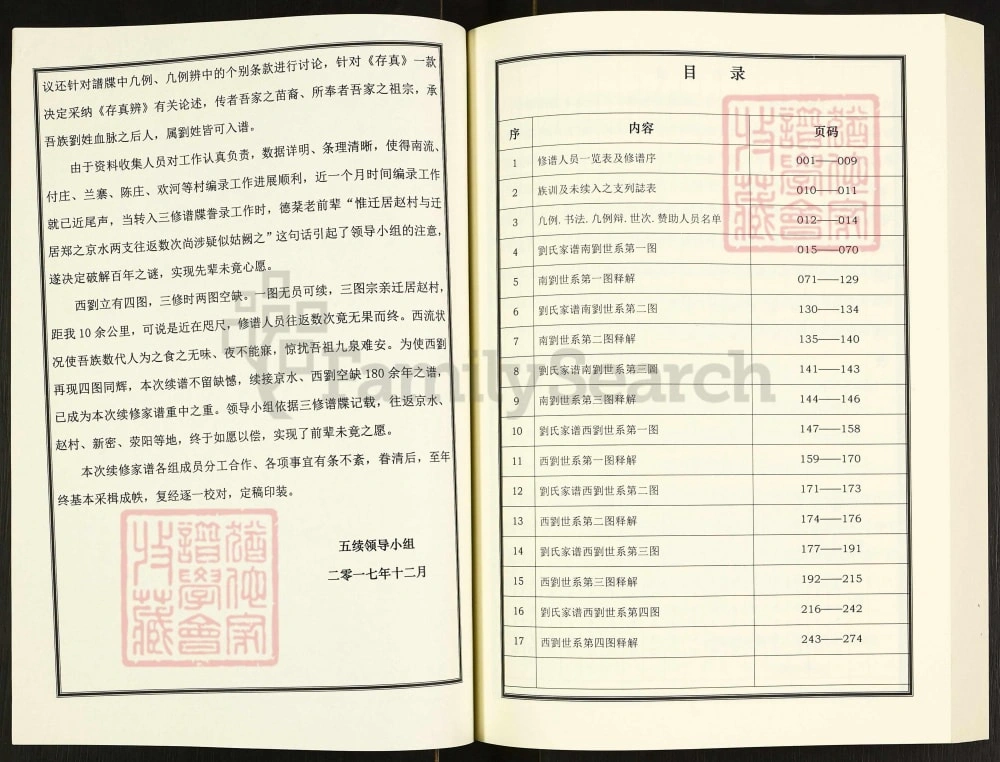 议还针对譜牒中凡例、凡例辨中的个别条款进行讨论，针对《存真》一款
决定采纳《存真辨》有关论述，传者吾家之苗裔、所奉者吾家之祖宗，承
吾族劉姓血脉之后人，属劉姓皆可入谱。
由于资料收集人员对工作认真负责，数据详明、条理清晰，使得南流、
付庄、兰寨、陈庄、欢河等村编录工作进展顺利，近一个月时间编录工作
就已近尾声，当转入三修谱牒誊录工作时，德棻老前辈“惟迁居赵村与迁
居郑之京水两支往返数次尚涉疑似姑阙之”这句话引起了领导小组的注意，
遂决定破解百年之谜，实现先辈未竟心愿。
西劉立有四图，三修时两图空缺。一图无员可续，三图宗亲迁居赵村，
距我 10 余公里，可说是近在咫尺，修谱人员往返数次竟无果而终。西流状
况使吾族数代人为之食之无味、夜不能寐，惊扰吾祖九泉难安。为使西劉
再现四图同辉，本次续谱不留缺憾，续接京水、西劉空缺 180 余年之谱，
已成为本次续修家谱重中之重。领导小组依据三修谱牒记载，往返京水、
赵村、新密、荥阳等地，终于如愿以偿，实现了前辈未竟之愿。
本次续修家谱各组成员分工合作、各项事宜有条不紊，眷清后，至年
终基本采楫成帙，复经逐一校对，定稿印装。
五续领导小组
二零一七年十二月
猶他家
譜學會
收藏
目 录
序 内容 页码
1 修谱人员一览表及修谱序 001——009
2 族训及未续入之支列誌表 010——011
3 凡例. 书法. 凡例辩. 世次. 赞助人员名单 012——014
4 劉氏家谱南劉世系第一图 015——070
5 南劉世系第一图释解 071——129
6 劉氏家谱南劉世系第二图 130——134
7 南劉世系第二图释解 135——140
8 劉氏家谱南劉世系第三圖 141——143
9 南劉世系第三图释解 144——146
10 劉氏家谱西劉世系第一图 147——158
11 西劉世系第一图释解 159——170
12 劉氏家谱西劉世系第二图 171——173
13 西劉世系第二图释解 174——176
14 劉氏家谱西劉世系第三图 177——191
15 西劉世系第三图释解 192——215
16 劉氏家谱西劉世系第四图 216——242
17 西劉世系第四图释解 243——274
猶他家
譜學會
收藏
FamilySearch